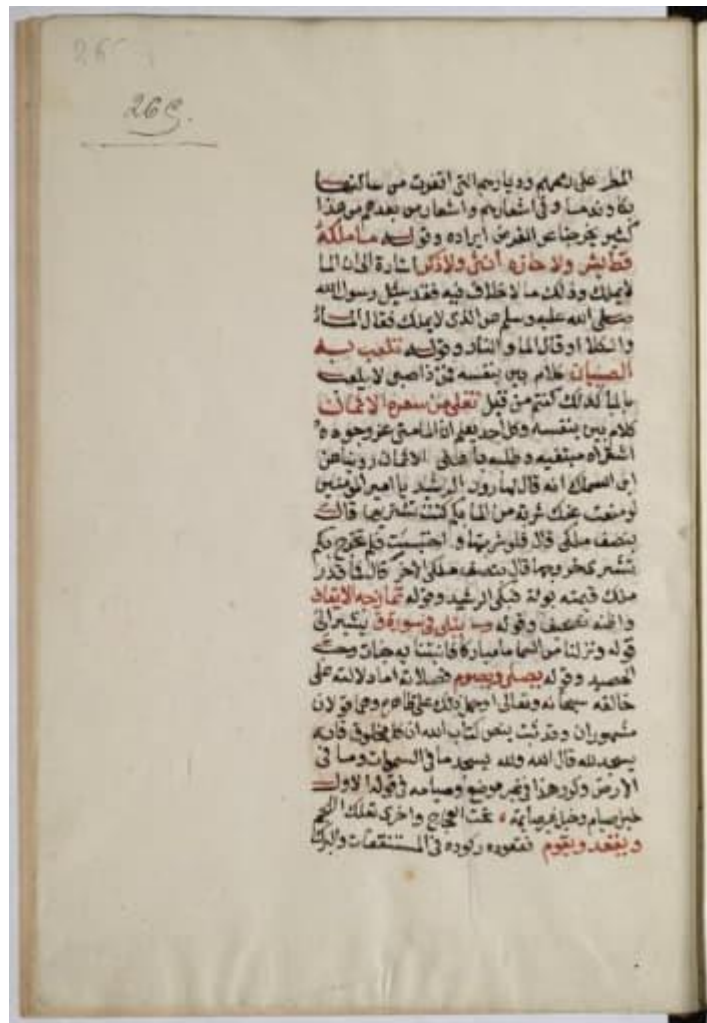 269.
المطر على رممهم وديارهم التي اقفرت من ساكنها
وفي اشعارهم واشعار من بعدهم من هذا
كثير يخرجنا عن الغرض ايراده وقوله ما ملكه
قط بشر ولا حازه أنثى ولا ذكر اشارة الى ان الما
لا يملك وذلك ما لا خلاف فيه فقد سئل رسول الله
صلى الله عليه وسلم عن الذى لا يملك فقال الماء
والكلا او قال الما والنار وقوله تلعب به
الصبيان كلام بين بنفسه فمن ذا صبى لا يلعب
بالما كذلك كنتم من قبل تغلى من سعره الاثمان
كلام بين بنفسه وكل احد يعلم ان الما متى عز وجوده
اشتراه مبتغيه وطلبه باغلى الاثمان روينا عن
ابن السماك انه قال لهارون الرشيد يا امير المؤمنين
لو منعت عنك شربة من الما بكم كنت تشتريها قال
بنصف ملكى قال فلو شربتها واحتبست فلم تخرج بكم
تشترى خروجها قال بنصف ملكى الاخر قال فما قدر
ملك قيمته بولة فبكى الرشيد وقوله تمازجه الانفاد
واظنه تصحيف وقوله يتلى فى سورة ق يشير الى
قوله ونزلنا من السما ما مباركا فانبتنا به جنات وحب
الحصيد وقوله يصلى ويصوم فصلاته اما دلالته على
خالقه سبحانه وتعالى او حمل ذلك على ظاهره وهما قولان
مشهوران وقد ثبت بنص كتاب الله ان كل مخلوق فانه
يسجد لله قال الله ولله يسجد ما فى السموات وما فى
الارض وكرر هذا فى غير موضع وصيامه فى قول الاول
خيل صيام وخيل غير صايمة ٥ تحت العجاج واخرى تعلك اللجم
ويقعد ويقوم فقعوده ركوده فى المستنقعات والبرك